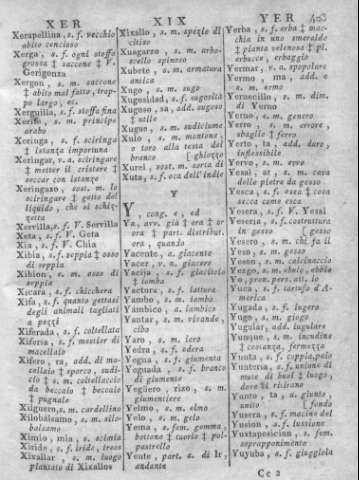 XER
XIX
YER
403
Xerapellina, s. f. vecchio
abito cencioso
Xerga, s. f. ogni stoffa
grossa ‡ saccone ‡ V.
Gerigonza
Xergon, s. m. saccone
‡ abito mal fatto, trop-
po largo, ec.
Xerguilla, s. f. stoffa fina
Xerife, s. m. principe
arabo
Xeringa, s. f. sciringa
‡ istanza importuna
Xeringar, v. a. sciringare
‡ metter il cristere ‡
seccar con istanze
Xeringazo, sost. m. lo
sciringare ‡ getto del
liquido, che si schiz-
zetta
Xervilla, s. f. V. Servilla
Xeta, s. f. V. Geta
Xia, s. f. V. Chia
Xibia, s. f. seppia ‡ osso
di seppia
Xibion, s. m. osso di
seppia
Xicara, s. f. chicchera
Xifa, s. f. quanto gettasi
degli animali tagliati
a pezzi
Xiferada, s. f. coltellata
Xiferia, s. f. mestier di
macellaio
Xifero, ra, add. di ma-
cellaio ‡ sporco, sudi-
cio ‡ s. m. coltellaccio
da beccaio ‡ beccaio
‡ pugnale
Xilguero, s. m. cardellino
Xilobalsamo, s. m. silo-
balsamo
Ximio, mia, s. scimia
Xiride, s. f. iride, ireos
Xixallar, s. m. luogo
plantato di Xixallos
Xixallo, s. m. spezie di
citiso
Xuagarzo, s. m. arbo-
scello spinoso
Xubete, s. m. armatura
antica
Xugo, s. m. sugo
Xugosidad, s. f. sugosità
Xugoso, sa, add. sugoso
‡ utile
Xugue, s. m. sudiciume
Xulo, s. m. montone,
o toro alla testa del
branco [ghiozzo
Xurel, sost. m. sorta di
Xuta, s. f. oca dell'indie
Y
Y, cong. e, ed
Ya, avv. già ‡ ora ‡ or
ora ‡ part. distribut.
ora, quando
Yacente, a. giacente
Yacer, v. n. giacere
Yacija, s. f. giacitoio
‡ tomba
Yactura, s. f. jattura
Yambo, s. m. iambo
Yambico, a. iambico
Yantar, s. m. vivande,
cibo
Yaro, s. m. iaro
Yedra, s. f. edera
Yegua, s. f. giumenta
Yeguada, s. f. branco
di giumente
Yegüero, rizo, s. m.
giumentiere
Yelmo, s. m. elmo
Yelo, s. m. gelo
Yema, s. f. sem, gomma,
bottone ‡ cuoio ‡ pol-
pastrello
Yente, part. a. di Ir
andante
Yerba, s. f. erba ‡ mac-
chia in uno smeraldo
‡ pianta velenosa ‡ pl.
erbucce, erbaggio
Yermar, v. a. spopolare
Yermo, ma, add. e
s. m. ermo
Yernecillo, s. m. dim.
di Yerno
Yerno, s. m. genero
Yerro, s. m. errore
sbaglio ‡ ferro
Yerto, ta, add. dare,
inflessibile
Yervo, s. m. ervo
Yesal, ar, s. m. cava
delle pietre da gesso
Yesca, s. f. esca ‡ cosa
secca come esca
Yesera, s. f. V. Yesal
Yeseria, s. f. costruttura
in gesso [gesso
Yesero, s. m. chi fa il
Yeso, s. m. gesso
Yeson, s. m. calcinaccio
Yezgo, s. m. ebulo, ebbio
Yo, pron. pers. att. io
Yuca, s. f. tartufo d'A-
merica
Yugada, s. f. iugero
Yugo, s. m. giogo
Yugular, add. iugulare
Yunque, s. m. incudine
‡ costanza, fermezza
Yunta, s. f. coppia, paio
Yunteria, s. f. unione di
mute di buoi ‡ luogo,
dove si ritirano
Yunto, ta, a. giunto,
unito [fondo
Yusera, s. f. macina del
Yusion, s. f. iussione
Yuxtaposicion, s. fem.
soprapponimento
Yuyuba, s. f. giuggiola
Cc 2